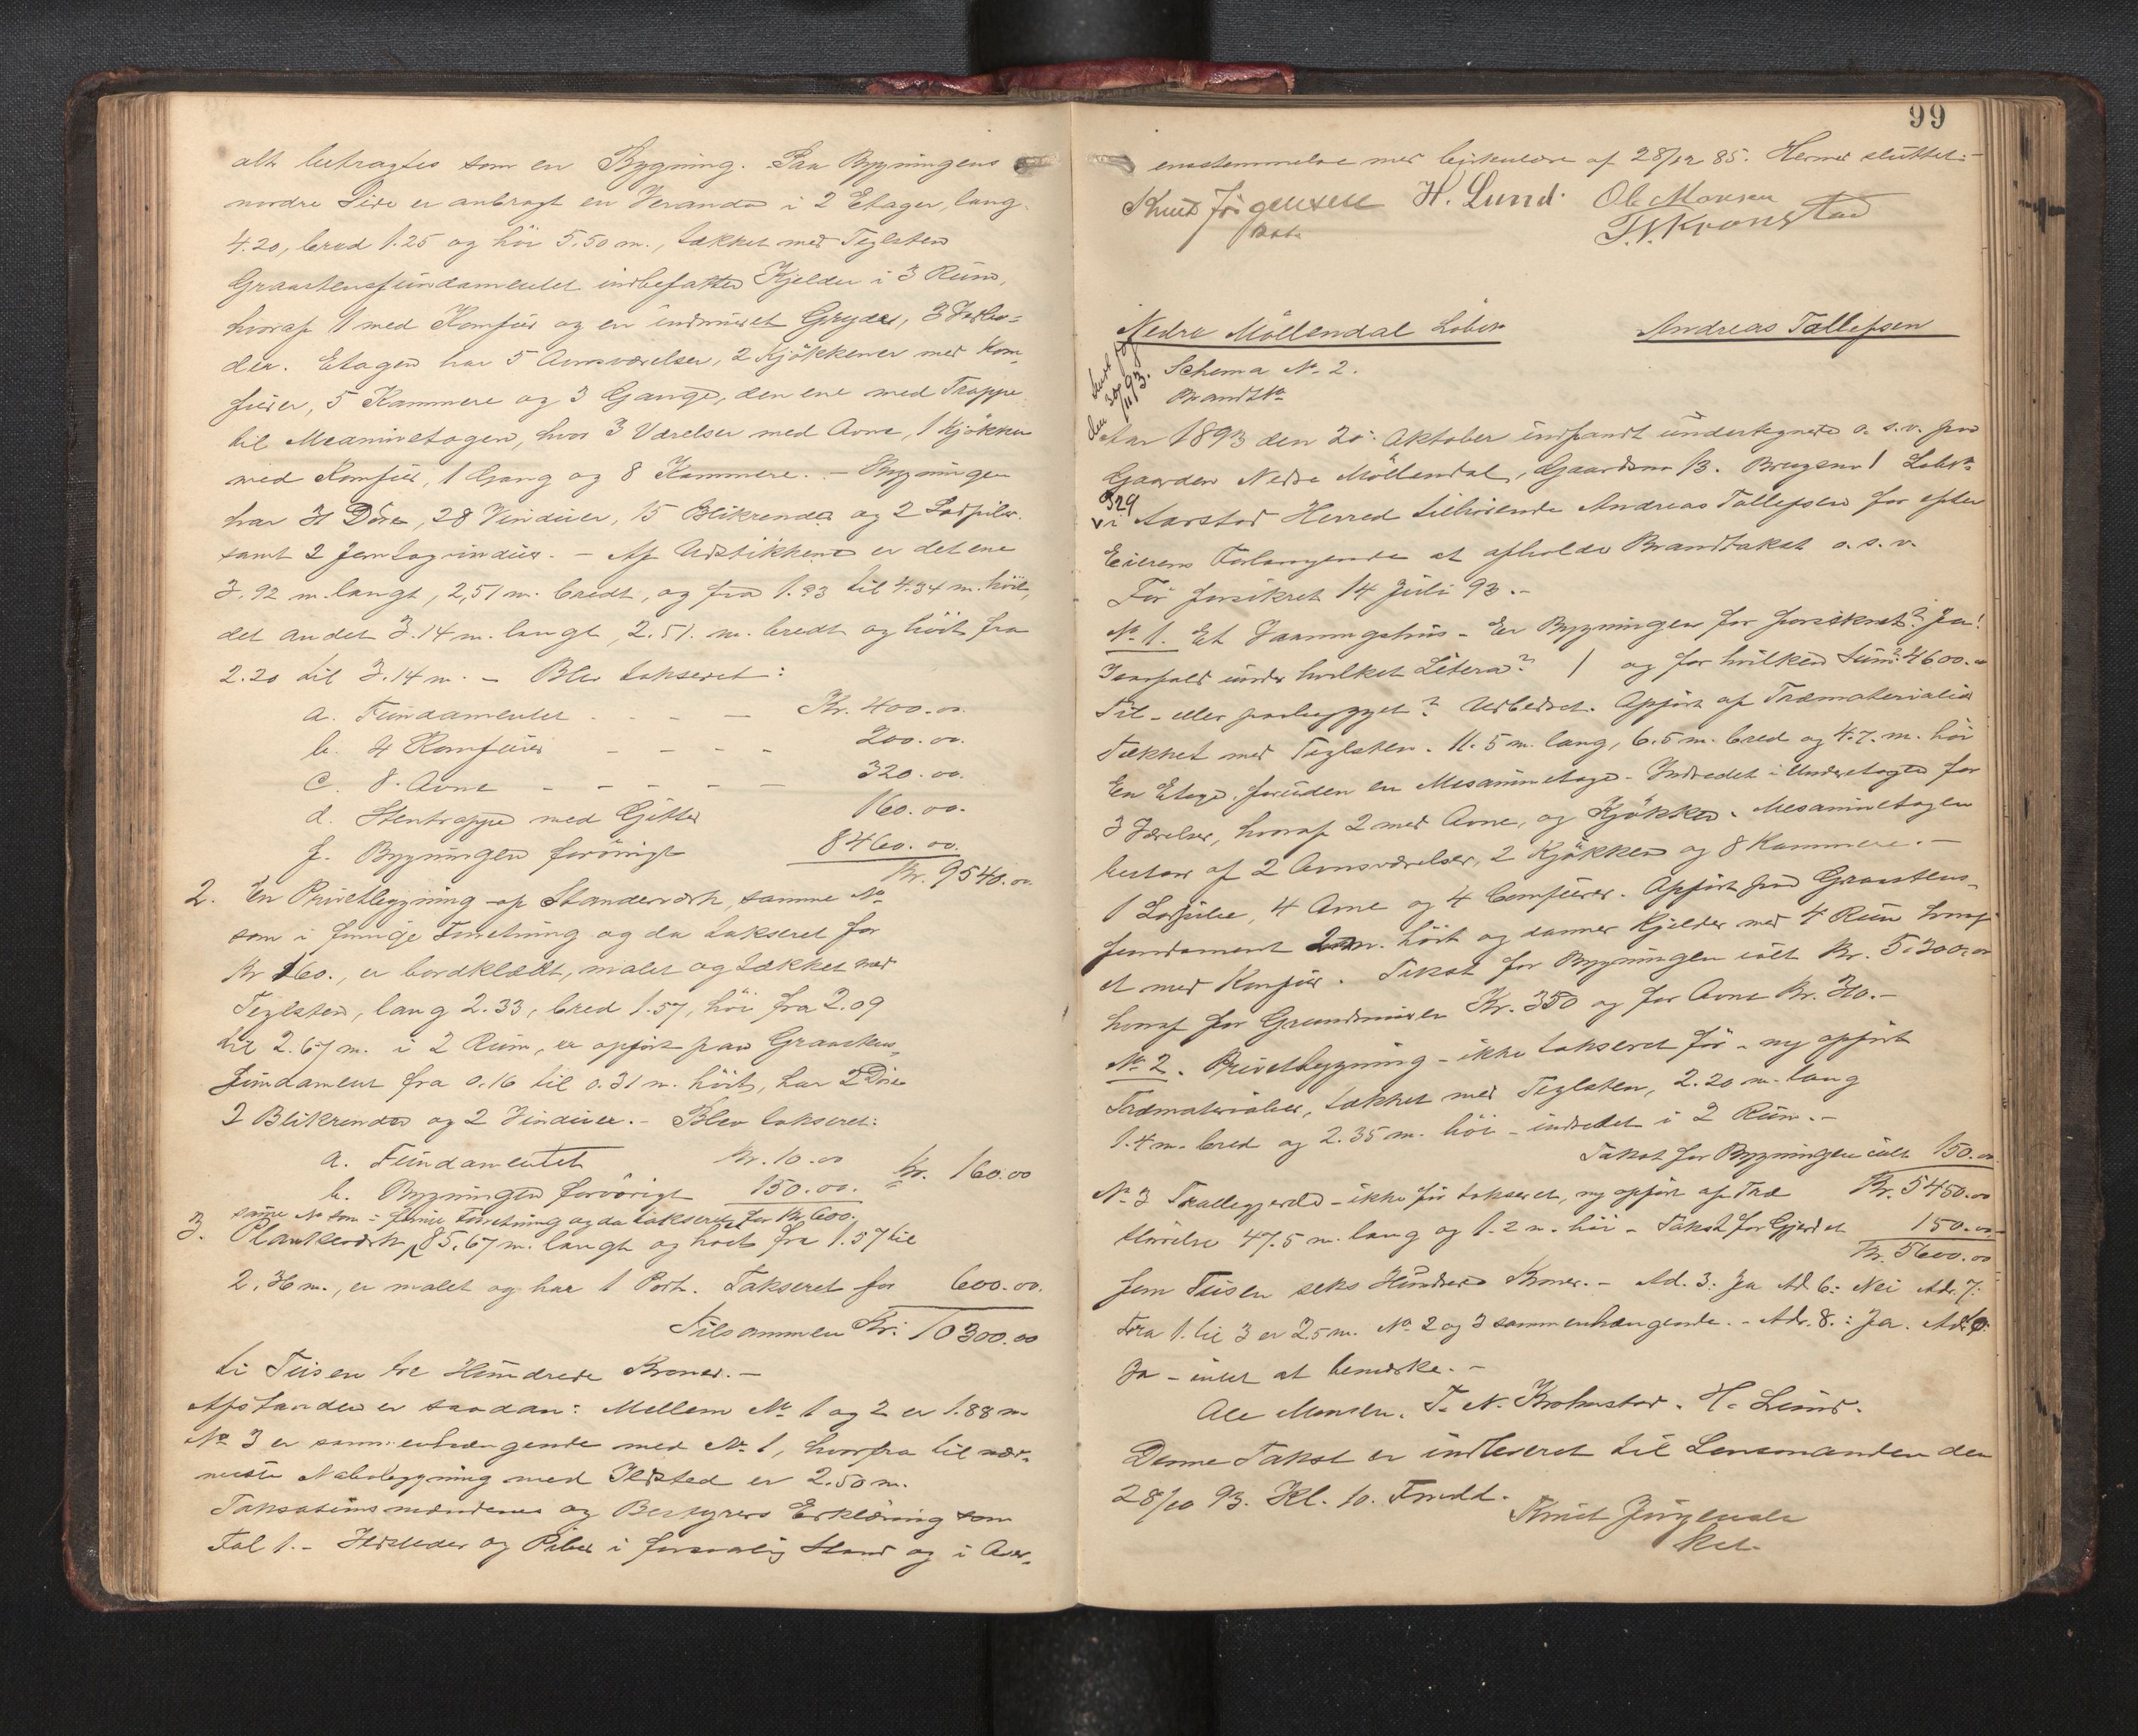 alt betragtes som en Bygning. Paa Bygningens
nordre Side er anbragt en Veranda i 2 Etager, lang
4.20, bred 1.25 og höi 5.50 m., tækket med Teglsten
Graastensfundamentet indbefatter Kjelder i 3 Rum,
hvoraf 1 med Komfur og en indmuret Gryde,
der. Etagen har 5 Avnsværelser, 2 Kjökkener med Kom-
furer, 5 Kammere og 3 Gange, den ene med Trappe
til Mesaninetagen, hvor 3 Værelser med Avne, 1 Kjökken
med Komfur, 1 Gang og 8 Kammere. - Bygningen
har Döre, 28 Vinduer, 15 Blikrender og 2
samt 2 Jerntagvinduer. - Af Udstikkene er det ene
3.92 m. langt, 2,51 m. bredt, og fra 1.93 til 4.34 m. höit,
det andet 3.14 m. langt, 2.51. m. bredt og höit fra
2.20 til 3.14 m. - Blev takseret:
a. Fundamentet - - - Kr. 400.00.
b. 4 Komfurer - - - - 200.00.
c. 8. Avne - - - - - 320.00.
d. Stentrappe med Gitter 160.00.
f. Bygningen forövrigt 8460.00.
Kr. 9540.00.
2. En Privetbygning af Standerværk, samme No
som i forrige Forretning og da takseret for
Kr 160., er bordklædt, malet og tækket med
Teglsten, lang 2.33, bred 1.57, höi fra 2.09
til 2.67 m. i 2 Rum, er opfört paa Graastens-
fundament fra 0.16 til 0.31 m. höit, har 2 Döre
2 Blikrender og 2 Vinduer. - Blev takseret:
a. Fundamentet Kr. 10.00
b. Bygningen forövrigt 150.00. Kr. 160.00
same No som i forrige Forretning og da takseret for Kr 600.
3. Plankeværk, 85,67 m. langt og höit fra 1.57 til
2.36 m., er malet og har 1 Port. Takseret for 600.00.
Tilsammen Kr. 10300.00
ti Tusen tre Hundrede Kroner. -
Afstanden er saadan: Mellem No 1 og 2 er 1.88 m
No 3 er sammenhængende med No 1, hvorfra til nær-
meste Nabobygning med Ildsted er 2.50 m.
Taksationsmændenes og Bestyrers Erklæring som
Fol 1. - Ildsteder og Piber i forsvarlig Stand og i Over-
99
ensstemmelse med Cirkulære af 28/12 85. Hermed sluttet: -
Knut Jörgensen H. Lund. Ole Monsen
T. N. Kronstad
Nedre Möllendal Löbno Andreas Tollefsen
Schema No 2.
Brandtkst
den 30/11 93.
Aar 1893 den 25. Oktober indfandt undertegnede o. s. v. paa
Gaarden Nedre Möllendal, Gaardsno 13. Brugsno 1 Löbno
329
i Aarstad Herred tilhörende Andreas Tollefsen for efter
Eierens Forlangende at afholde Brandtakst o. s. v.
För forsikret 14 Juli 93. -
No 1. Et Vaaningshus - Er Bygningen för forsikret? Ja!
I saafald under hvilket Litera? 1 og for hvilken Sum? 4600.00
Til- eller paabygget? Udbedret. Opfört af Træmaterialier
Tækket med Teglsten. 11.5 m. lang, 6.5 m. bred og 4.7. m. höi
En Etage, foruden en Mesaninetage - Indredet i Underetagen for
3 Værelser, hvoraf 2 med Avne, og Kjökken. Mesaninetagen
bestaar af 2 Avnsværelser, 2 Kjökken og 8 Kammere. -
1 Lodpibe, 4 Avne og 4 Comfurer. Opfört paa Graastens-
fundament 2 m. höit og danner Kjelder med 4 Rum hvoraf
et med Komfur. Takst for Bygningen ialt Kr. 5300.00
hvoraf for Grundmuren Kr. 350 og for Avne Kr. -
No 2. Privetbygning - ikke takseret för - ny opfört
Træmaterialier, tækket med Teglsten, 2.20 m. lang
1.4 m. bred og 2.35 m. höi - indredet i 2 Rum. -
Takst for Bygningen ialt 150.00.
Kr. 5450.00
No 3 - ikke för takseret, ny opfört af Træ
Störrelse 47.5 m. lang og 1.2 m. höi - Takst for Gjerdet 150.00
Kr. 5600.00
fem Tusen seks Hundrede Kroner. - Ad. 3: Ja Ad 6: Nei Adr. 7:
Fra 1. til 3 er 25 m. No 2 og 3 sammenhængende. - Adr. 8.: Ja.
Ja - intet at bemærke. -
Ole Monsen. T. N. Krohnstad. H. Lund.
Denne Takst er indleveret til Lensmanden den
28/10 93. Kl. 10. Fmdd.
Knut Jörgensen